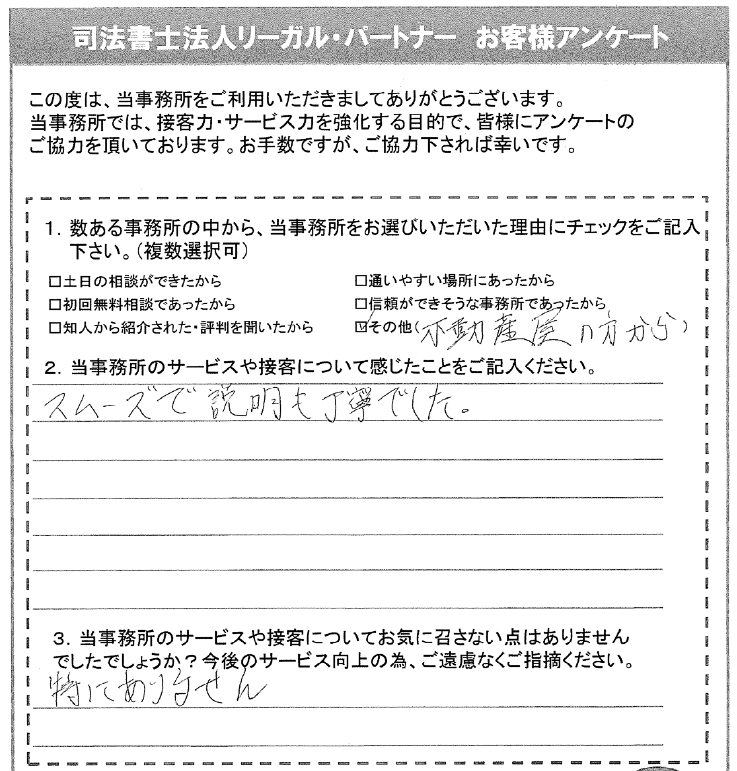 司法書士法人リーガル・パートナー お客様アンケート
この度は、当事務所をご利用いただきましてありがとうございます。
当事務所では、接客力・サービス力を強化する目的で、皆様にアンケートの
ご協力を頂いております。お手数ですが、ご協力下されば幸いです。
1. 数ある事務所の中から、当事務所をお選びいただいた理由にチェックをご記入
下さい。(複数選択可)
□土日の相談ができたから □通いやすい場所にあったから
□初回無料相談であったから □信頼ができそうな事務所であったから
□知人から紹介された・評判を聞いたから ☑その他(不動産屋の方から)
2. 当事務所のサービスや接客について感じたことをご記入ください。
スムーズで説明も丁寧でした。
3. 当事務所のサービスや接客についてお気に召さない点はありません
でしたでしょうか?今後のサービス向上の為、ご遠慮なくご指摘ください。
特にありません